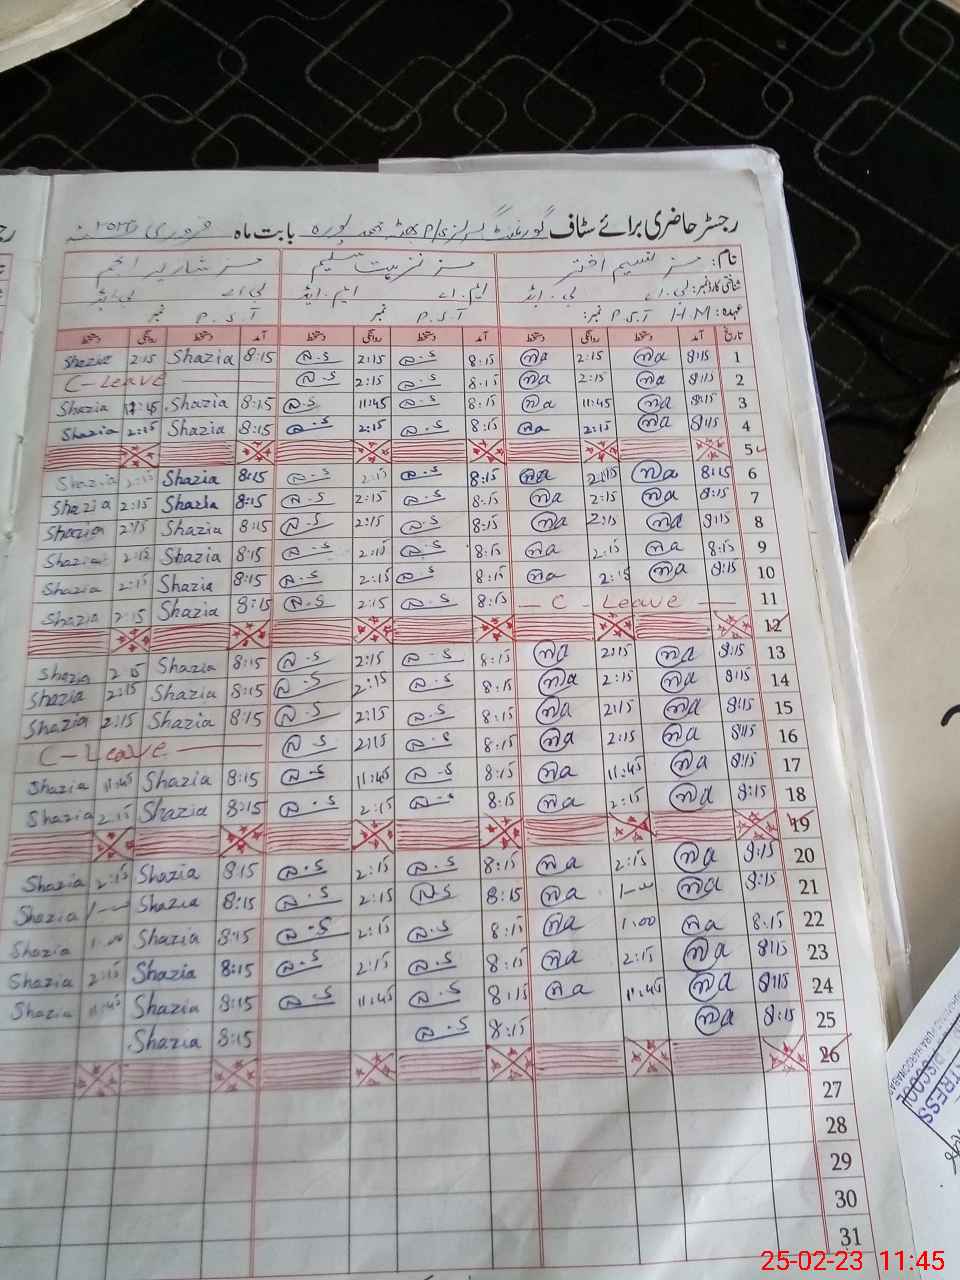 رجسٹر حاضری برائے سٹاف گورنمنٹ گرلز P/S بابت ماہ فروری
نام: مسز نسیم اختر مسز نزہت سلیم مسز شازیہ انجم
شناختی کارڈ نمبر: بی.اے بی.ایڈ ایم.اے ایم.ایڈ بی اے بی.ایڈ
عہدہ: H.M P.S.T نمبر: P.S.T نمبر P.S.T نمبر
تاریخ آمد دستخط روانگی دستخط آمد دستخط روانگی دستخط آمد دستخط روانگی دستخط
1 8:15 ma 2:15 ma 8:15 a.s 2:15 a.s 8:15 Shazia 2:15 Shazia
2 8:15 ma 2:15 ma 8:15 a.s 2:15 a.s C-Leave
3 8:15 ma 11:45 ma 8:15 a.s 11:45 a.s 8:15 Shazia 11:45 Shazia
4 8:15 ma 2:15 ma 8:15 a.s 2:15 a.s 8:15 Shazia 2:15 Shazia
5
6 8:15 ma 2:15 ma 8:15 a.s 2:15 a.s 8:15 Shazia 2:15 Shazia
7 8:15 ma 2:15 ma 8:15 a.s 2:15 a.s 8:15 Shazia 2:15 Shazia
8 8:15 ma 2:15 ma 8:15 a.s 2:15 a.s 8:15 Shazia 2:15 Shazia
9 8:15 ma 2:15 ma 8:15 a.s 2:15 a.s 8:15 Shazia 2:15 Shazia
10 8:15 ma 2:15 ma 8:15 a.s 2:15 a.s 8:15 Shazia 2:15 Shazia
11 C - Leave 8:15 a.s 2:15 a.s 8:15 Shazia 2:15 Shazia
12
13 8:15 ma 2:15 ma 8:15 a.s 2:15 a.s 8:15 Shazia 2:15 Shazia
14 8:15 ma 2:15 ma 8:15 a.s 2:15 a.s 8:15 Shazia 2:15 Shazia
15 8:15 ma 2:15 ma 8:15 a.s 2:15 a.s 8:15 Shazia 2:15 Shazia
16 8:15 ma 2:15 ma 8:15 a.s 2:15 a.s C-Leave
17 8:15 ma 11:45 ma 8:15 a.s 11:45 a.s 8:15 Shazia 11:45 Shazia
18 8:15 ma 2:15 ma 8:15 a.s 2:15 a.s 8:15 Shazia 2:15 Shazia
19
20 8:15 ma 2:15 ma 8:15 a.s 2:15 a.s 8:15 Shazia 2:15 Shazia
21 8:15 ma 1-00 ma 8:15 a.s 2:15 a.s 8:15 Shazia 1-00 Shazia
22 8.15 ma 1.00 ma 8:15 a.s 2:15 a.s 8:15 Shazia 1.00 Shazia
23 8:15 ma 2:15 ma 8:15 a.s 2:15 a.s 8:15 Shazia 2:15 Shazia
24 8:15 ma 11:45 ma 8:15 a.s 11:45 a.s 8:15 Shazia 11:45 Shazia
25 8:15 ma 8:15 a.s 8:15 Shazia
26
27
28
29
30
31
25-02-23 11:45